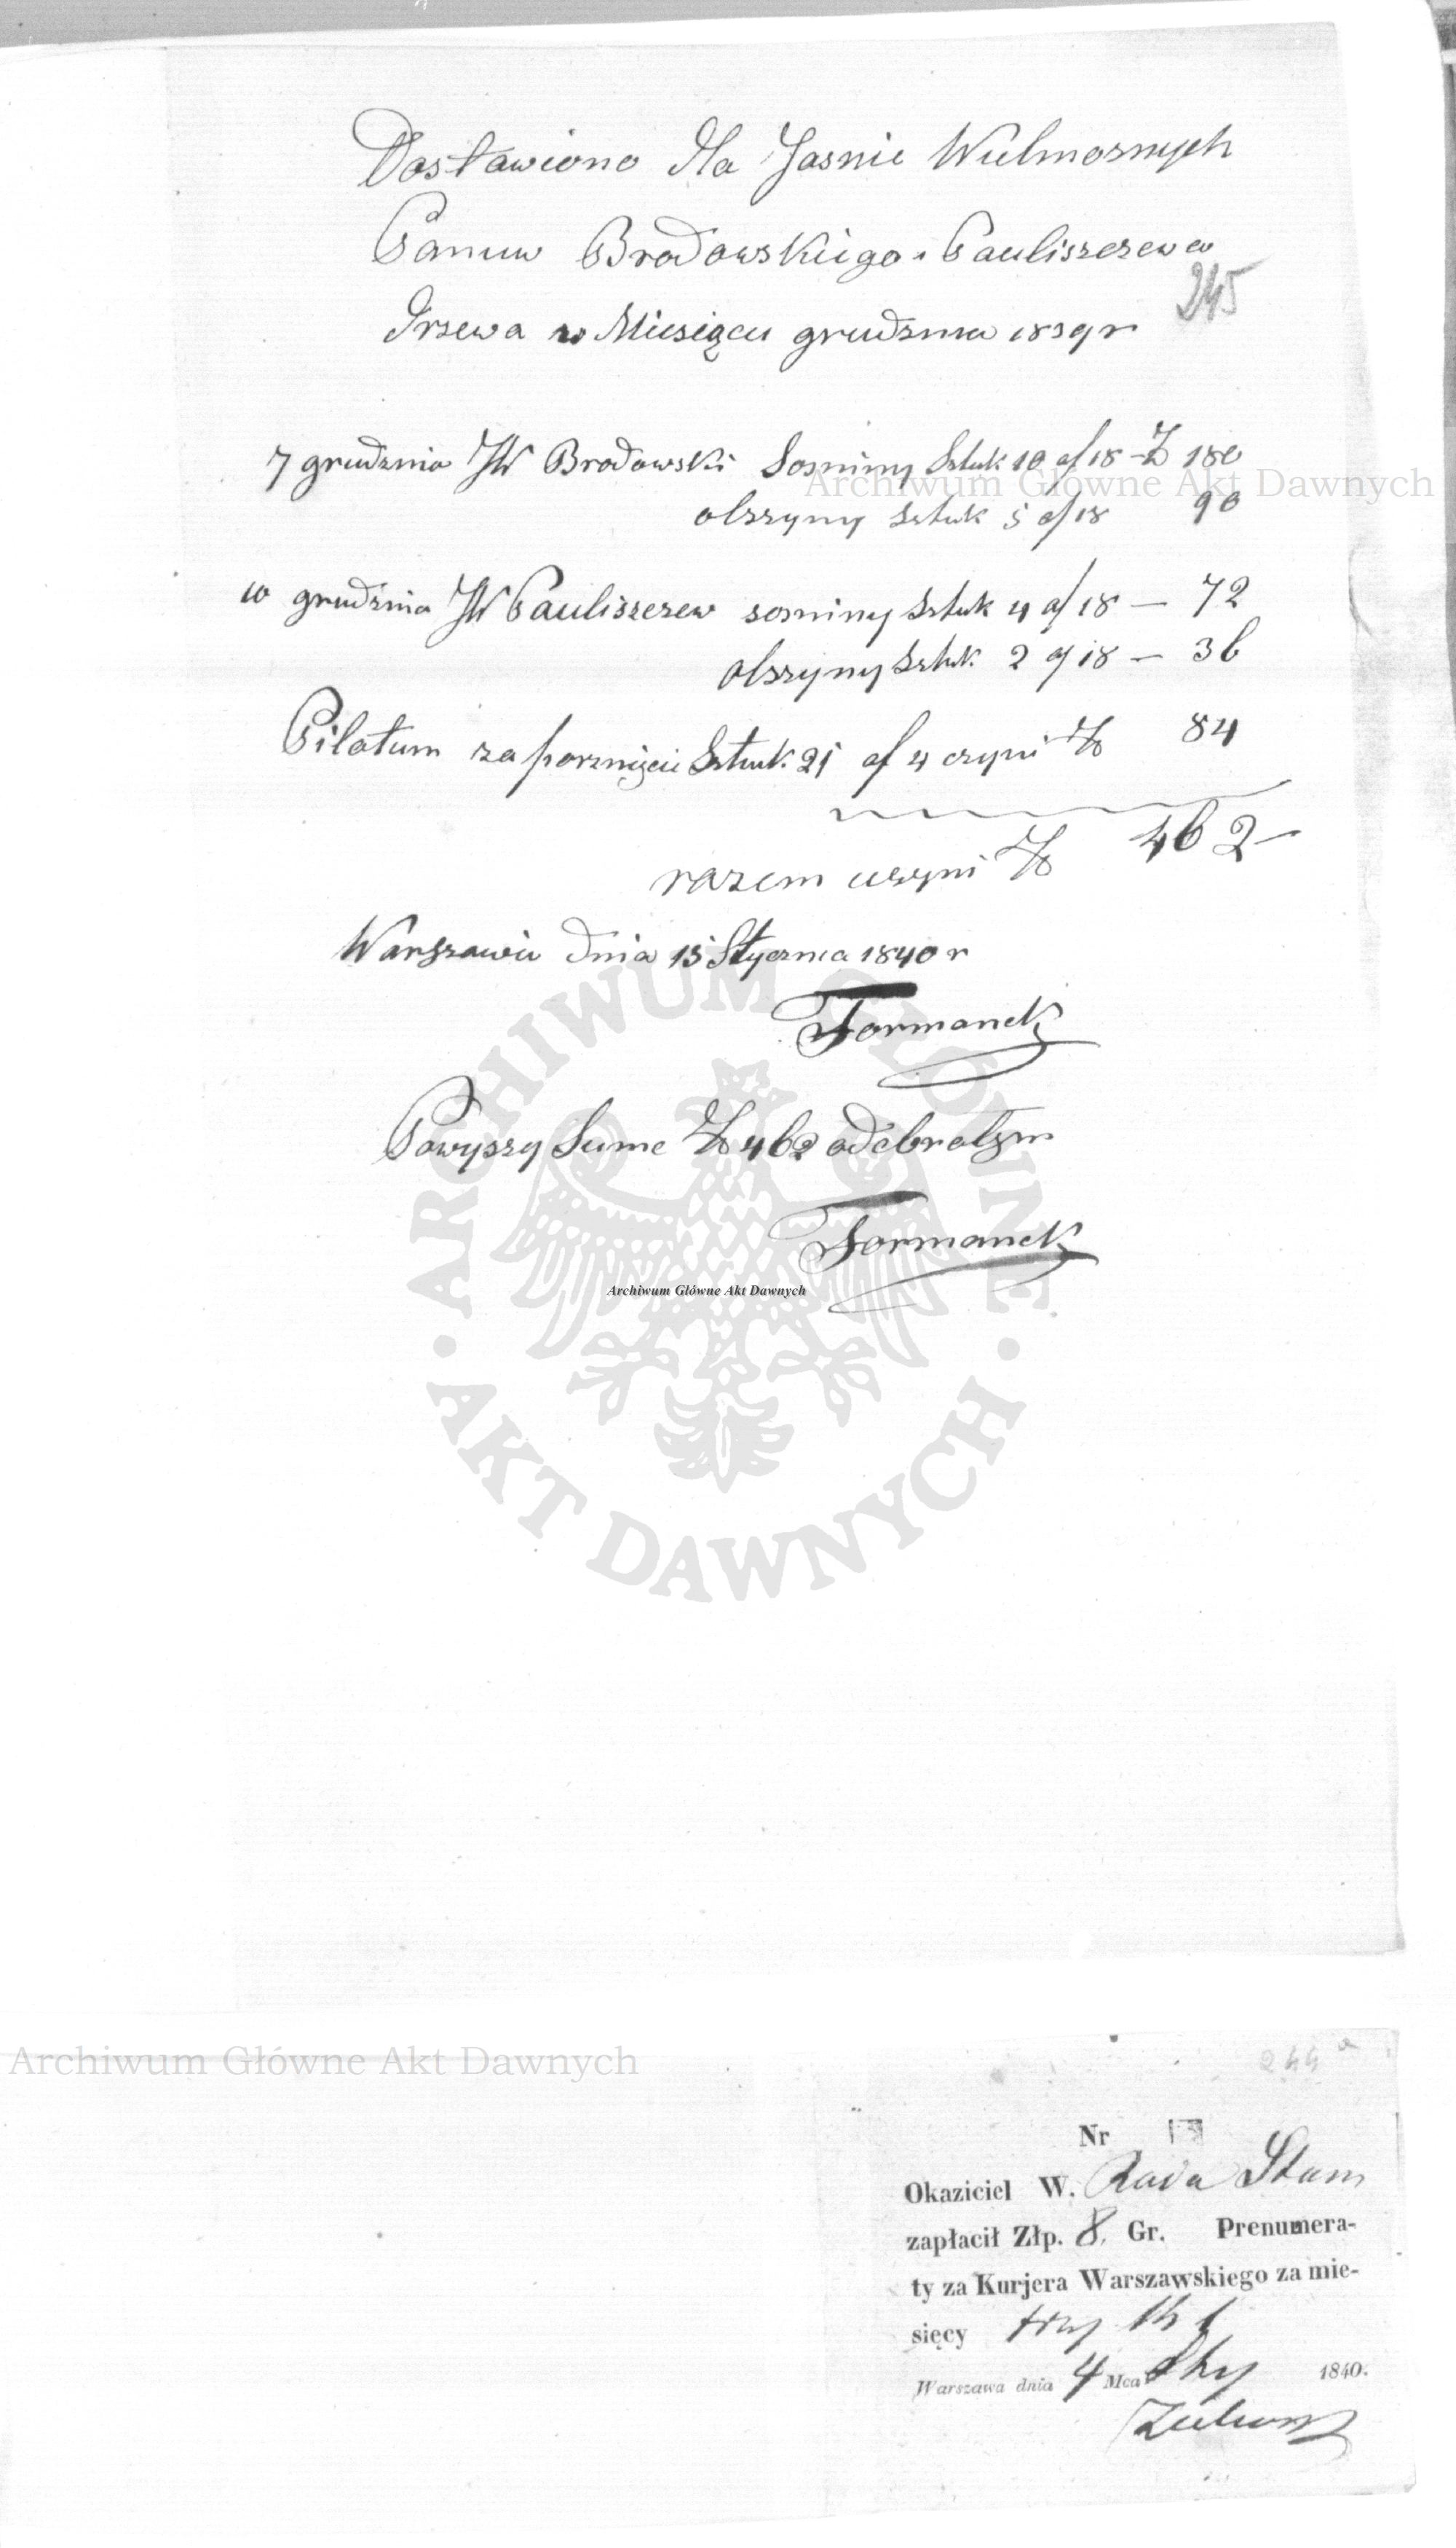 Dostawiono dla Jasnie Wielmoznych
Panuw Brodowskiego i Pauliszczewa
245
Drzewa w Miesiącu grudznia 1839 r
7 grudznia JW Brodowski Sosniny Sztuk 10 a/18 – Zł 180
Archiwum Główne Akt Dawnych
olszyny Sztuk 5 a/18 90
10 grudznia JW Pauliszczew sosniny Sztuk 4 a/18 – 72
olszyny Sztuk 2 a/18 – 36
Pilatum za porznięcie Sztuk 21 a/ 4 czyni Zł 84
razem uczyni Zł 462 –
Warszawie dnia 15 Stycznia 1840 r
Formanek
Powyszy Sume Zł 462 odebrałem
Formanek
ARCHIWUM GŁÓWNE
Archiwum Główne Akt Dawnych
AKT DAWNYCH
Archiwum Główne Akt Dawnych
244 a
Nr 13
Okaziciel W. Rada Stanu
zapłacił Złp. 8. Gr. Prenumera-
ty za Kurjera Warszawskiego za mie-
sięcy trzy
Warszawa dnia 4 Mca 1840.